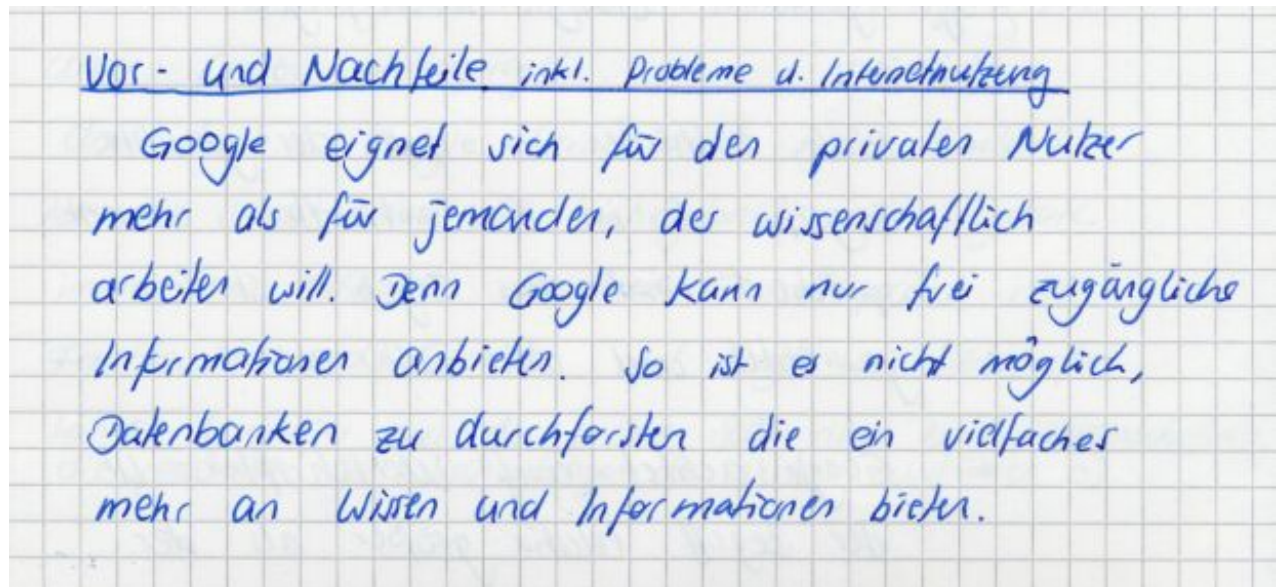 Vor- und Nachteile inkl. Probleme d. Internetnutzung
Google eignet sich für den privaten Nutzer
mehr als für jemanden, der wissenschaftlich
arbeiten will. Denn Google kann nur frei zugängliche
Informationen anbieten. So ist es nicht möglich,
Datenbanken zu durchforsten die ein vielfaches
mehr an Wissen und Informationen bieten.